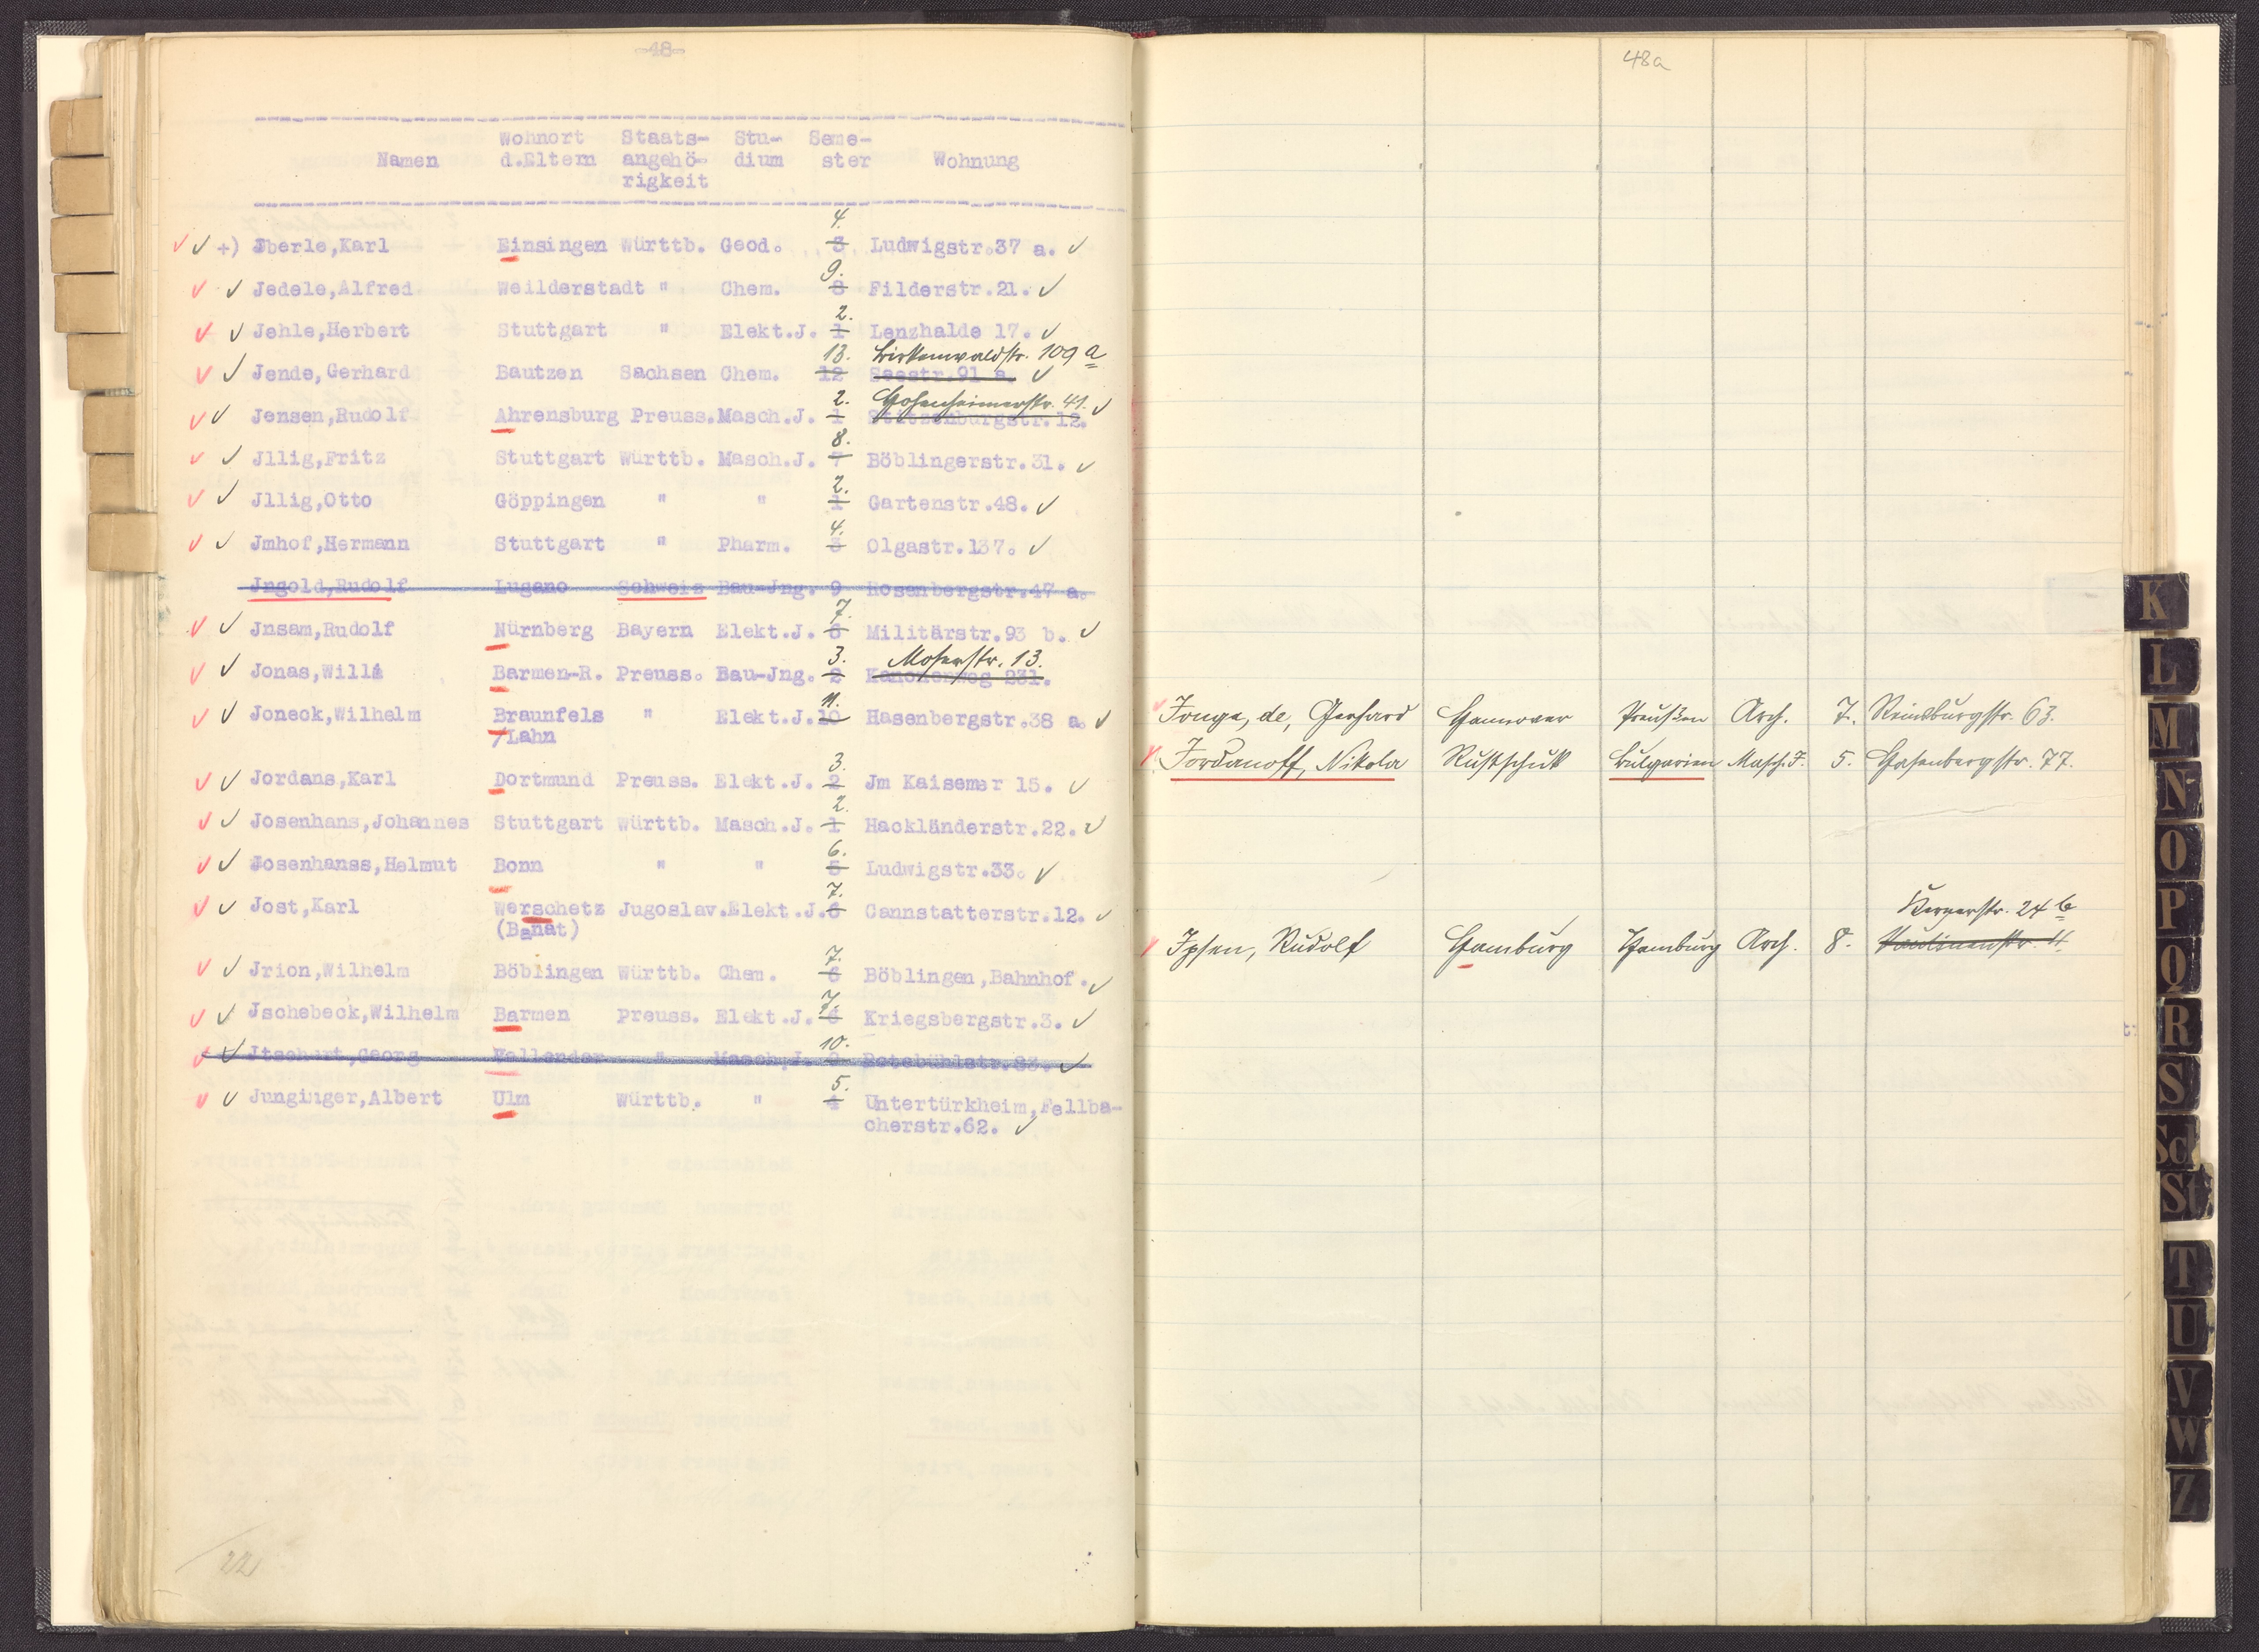 -48-
Wohnort Staats- Stu- Seme-
Namen d.Eltern angehö- dium ster Wohnung
rigkeit
4.
+) Jberle,Karl Einsingen Württb. Geod. 3 Ludwigstr.37 a.
9.
Jedele,Alfred Weilderstadt " Chem. 8 Filderstr.21.
2.
Jehle,Herbert Stuttgart " Elekt.J. 1 Lenzhalde 17.
13. Birkenwaldstr. 109 a
Jende,Gerhard Bautzen Sachsen Chem. 12 Seestr.91 a.
2. Hohenheimerstr. 41.
Jensen,Rudolf Ahrensburg Preuss.Masch.J. 1 Stitzenburgstr.12.
8.
Jllig,Fritz Stuttgart Württb. Masch.J. 7 Böblingerstr.31.
2.
Jllig,Otto Göppingen " " 1 Gartenstr.48.
4.
Jmhof,Hermann Stuttgart " Pharm. 3 Olgastr.137.
Jngold,Rudolf Lugano Schweiz Bau-Jng. 9 Rosenbergstr.47 a.
7.
Jnsam,Rudolf Nürnberg Bayern Elekt.J. 6 Militärstr.93 b.
3. Moserstr. 13.
Jonas,Willi Barmen-R. Preuss. Bau-Jng. 2 Kanonenweg 231.
11.
Joneck,Wilhelm Braunfels " Elekt.J.10 Hasenbergstr.38 a.
/Lahn
3.
Jordans,Karl Dortmund Preuss. Elekt.J. 2 Jm Kaisemer 15.
2.
Josenhans,Johannes Stuttgart Württb. Masch.J. 1 Hackländerstr.22.
6.
Josenhanss,Helmut Bonn " " 5 Ludwigstr.33.
7.
Jost,Karl Werschetz Jugoslav.Elekt.J.6 Cannstatterstr.12.
(Banat)
7.
Jrion,Wilhelm Böblingen Württb. Chem. 6 Böblingen,Bahnhof.
7.
Jschebeck,Wilhelm Barmen Preuss. Elekt.J. 6 Kriegsbergstr.3.
10.
Jtschert,Georg Vallendar " Masch.J. 9 Rotebühlstr.83.
5.
Junginger,Albert Ulm Württb. " 4 Untertürkheim,Fellba-
cherstr.62.
22
48a
Jonge, de, Gerhard Hannover Preußen Arch. 7. Reinsburgstr. 63.
Jordanoff, Nikola Rustschuk Bulgarien Masch.J. 5. Hasenbergstr. 77.
Kernerstr. 24 b
Ipsen, Rudolf Hamburg Hamburg Arch. 8. Paulinenstr. 4.
K
L
M
N
O
P
Q
R
S
Sch
St
T
U
V
W
Z